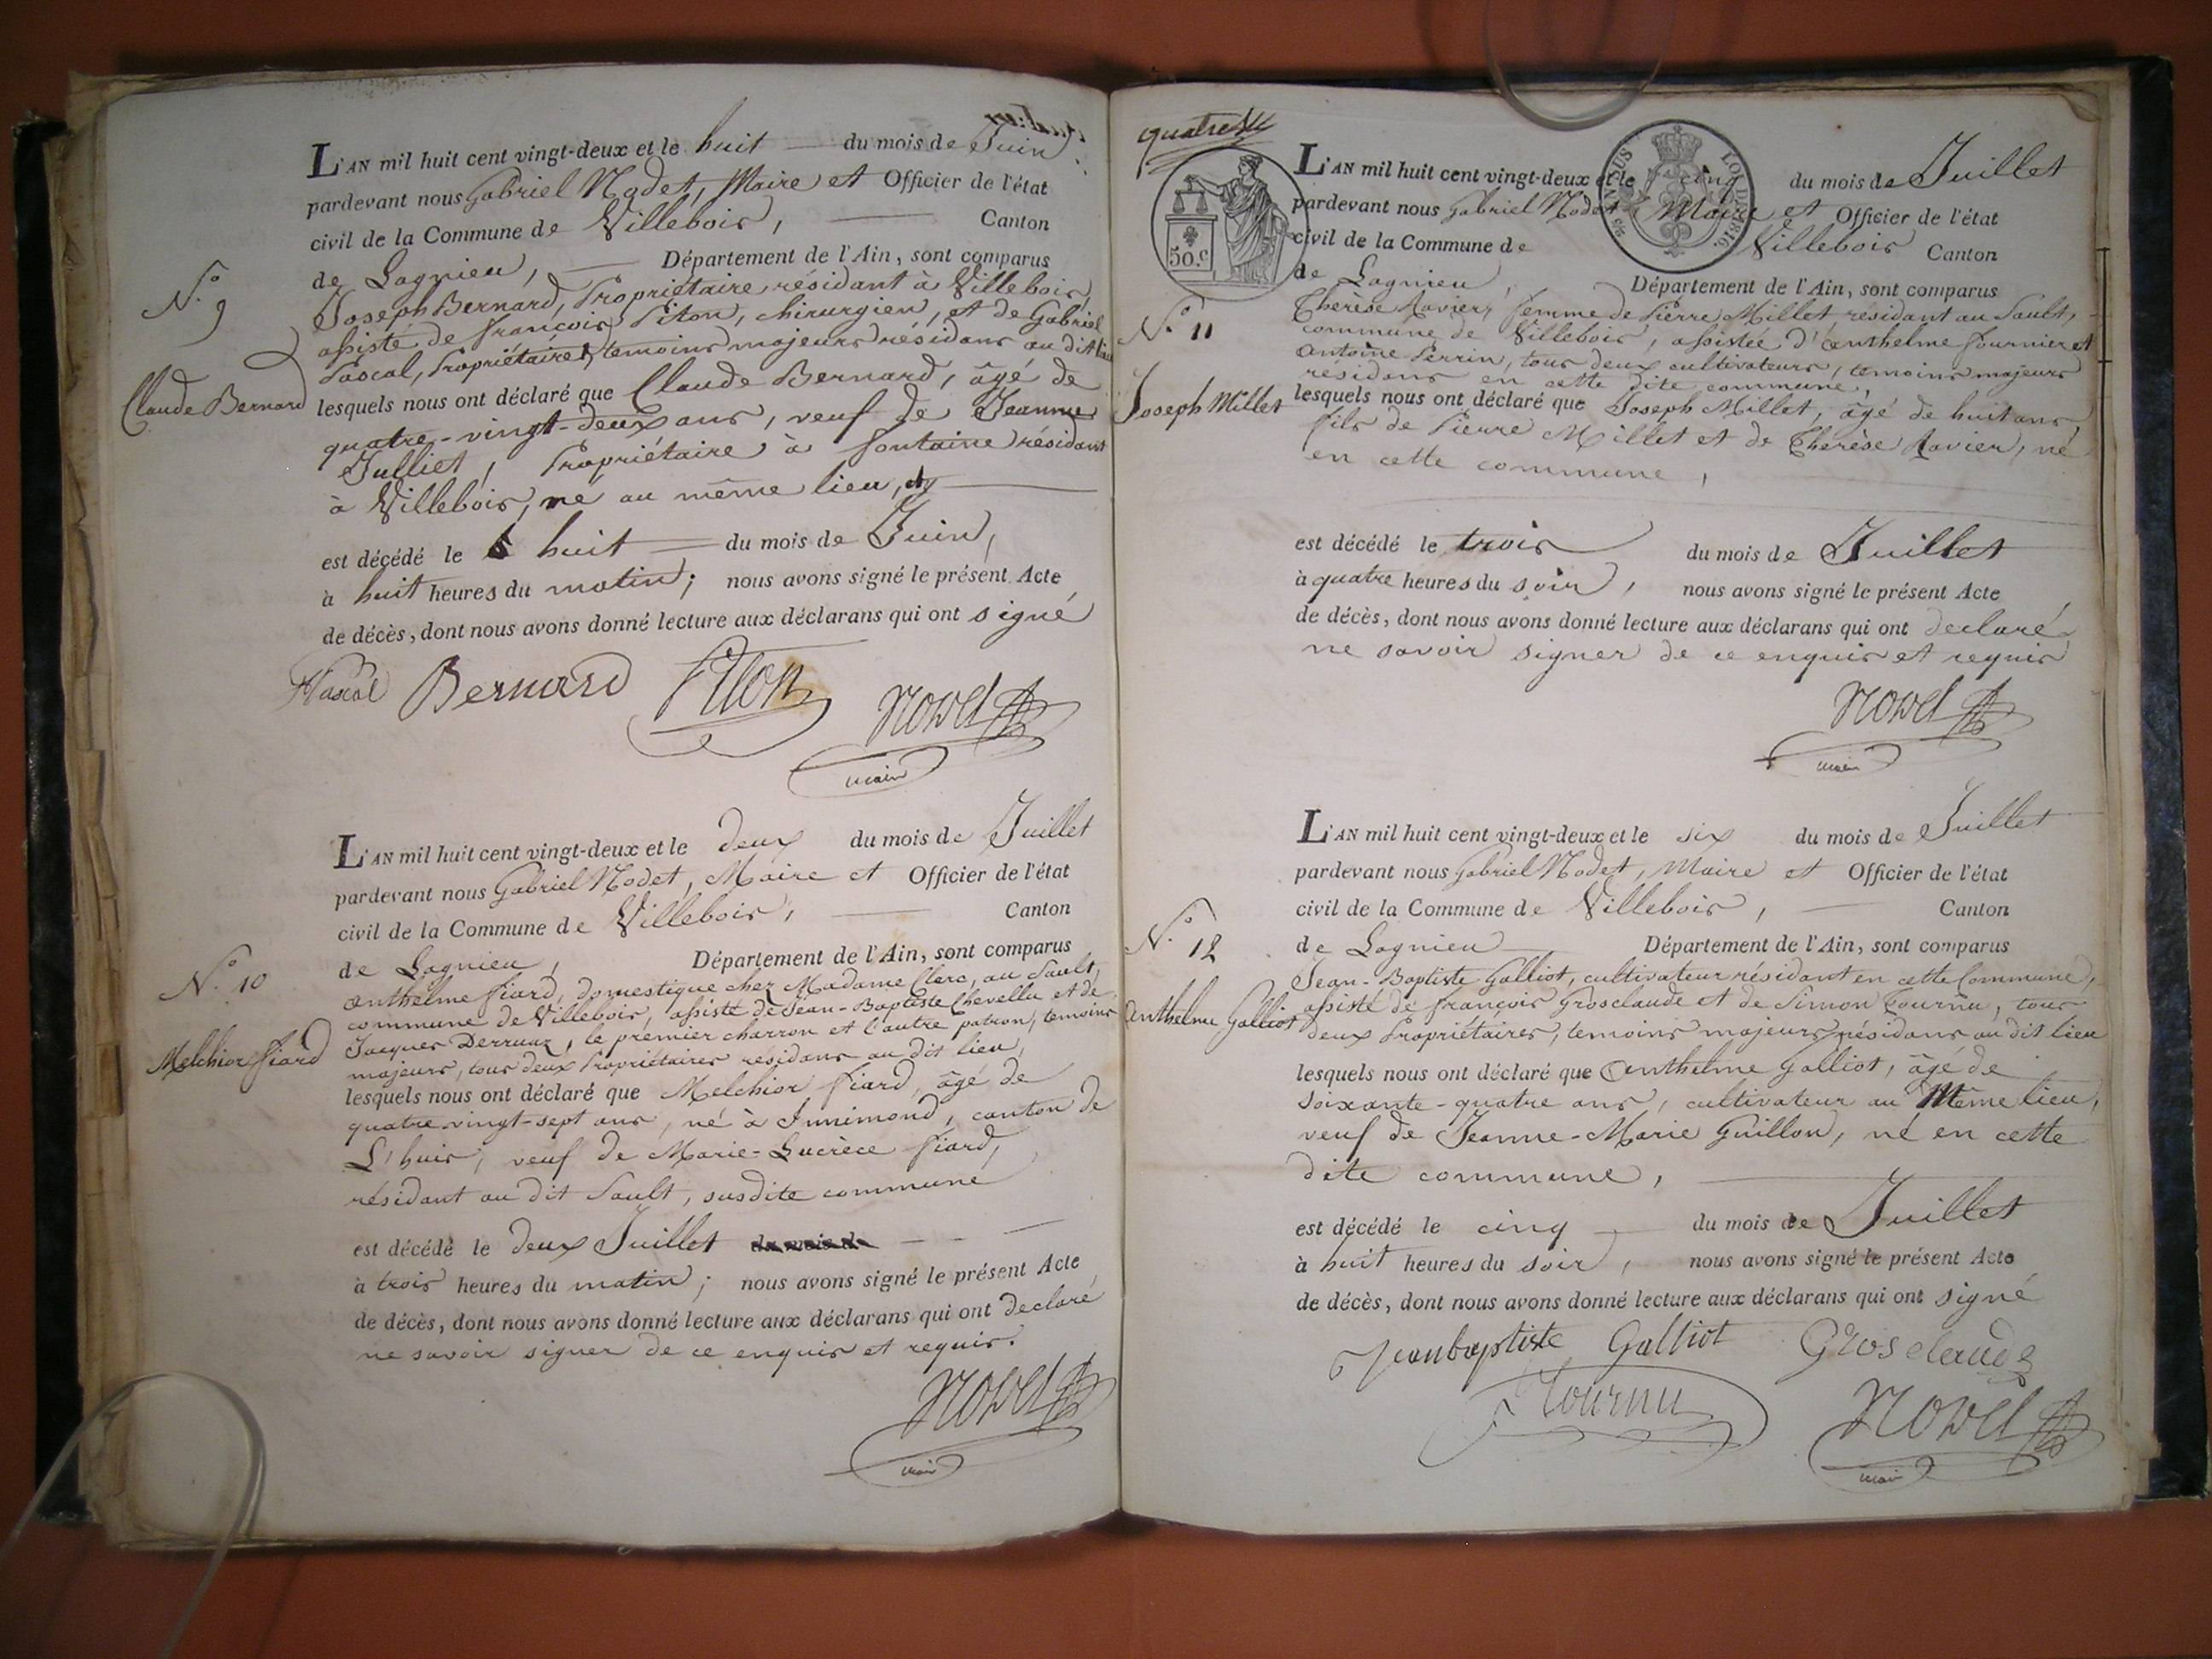 L'AN mil huit cent vingt-deux et le huit du mois de Juin
pardevant nous Gabriel Nodet, Maire et Officier de l'état
civil de la Commune de Villebois, Canton
de Lagnieu, Département de l'Ain, sont comparus
Joseph Bernard, Propriétaire résidant à Villebois
assisté de françois Piton, chirurgien, et de Gabriel
Pascal, Propriétaire, temoins majeurs résidans au dit lieu
lesquels nous ont déclaré que Claude Bernard, âgé de
quatre-vingt-deux ans, veuf de Jeanne
Julliet, Propriétaire à fontaine résidant
à Villebois, né au même lieu,
est décédé le huit du mois de Juin,
à huit heures du matin; nous avons signé le présent Acte
de décès, dont nous avons donné lecture aux déclarans qui ont signé
N.° 9
Claude Bernard
Pascal Bernard Piton Nodet
maire
L'AN mil huit cent vingt-deux et le deux du mois de Juillet
pardevant nous Gabriel Nodet, Maire et Officier de l'état
civil de la Commune de Villebois, Canton
de Lagnieu, Département de l'Ain, sont comparus
anthelme fiard, domestique chez Madame Clerc, au Sault,
commune de Villebois, assisté de Jean-Baptiste Chevellu et de
Jacques Derruaz, le premier charron et l'autre patron, temoins
majeurs, tous deux Propriétaires résidans au dit lieu,
lesquels nous ont déclaré que Melchior fiard, âgé de
quatre-vingt-sept ans, né à Innimond, canton de
L'huis, veuf de Marie-Lucrèce fiard,
résidant au dit Sault, susdite commune
est décédé le deux Juillet du mois de
à trois heures du matin; nous avons signé le présent Acte
de décès, dont nous avons donné lecture aux déclarans qui ont declaré
ne savoir signer de ce enquis et requis.
N.° 10
Melchior fiard
Nodet
maire
quatre
50.C
LOI DE 1816.
L'AN mil huit cent vingt-deux et le cinq du mois de Juillet
pardevant nous Gabriel Nodet, Maire et Officier de l'état
civil de la Commune de Villebois Canton
de Lagnieu, Département de l'Ain, sont comparus
Therèse Ravier, femme de Pierre Millet résidant au Sault,
commune de Villebois, assistée d'anthelme fournier et
antoine Perrin, tous deux cultivateurs, temoins majeurs
résidans en cette dite commune,
lesquels nous ont déclaré que Joseph Millet, âgé de huit ans,
fils de Pierre Millet et de Therèse Ravier, né
en cette commune,
est décédé le trois du mois de Juillet
à quatre heures du soir, nous avons signé le présent Acte
de décès, dont nous avons donné lecture aux déclarans qui ont declaré
ne savoir signer de ce enquis et requis
N.° 11
Joseph Millet
Nodet
maire
L'AN mil huit cent vingt-deux et le six du mois de Juillet
pardevant nous Gabriel Nodet, Maire et Officier de l'état
civil de la Commune de Villebois, Canton
de Lagnieu Département de l'Ain, sont comparus
Jean-Baptiste Galliot, cultivateur résidant en cette Commune,
assisté de françois Grosclaude et de Simon Tournu, tous
deux Propriétaires, temoins majeurs résidans au dit lieu
lesquels nous ont déclaré que anthelme Galliot, âgé de
soixante-quatre ans, cultivateur au Même lieu,
veuf de Jeanne-Marie Guillon, né en cette
dite commune,
est décédé le cinq du mois de Juillet
à huit heures du soir, nous avons signé le présent Acte
de décès, dont nous avons donné lecture aux déclarans qui ont signé
N.° 12
anthelme Galliot
Jeanbaptiste Galliot Grosclaude
Tournu Nodet
maire